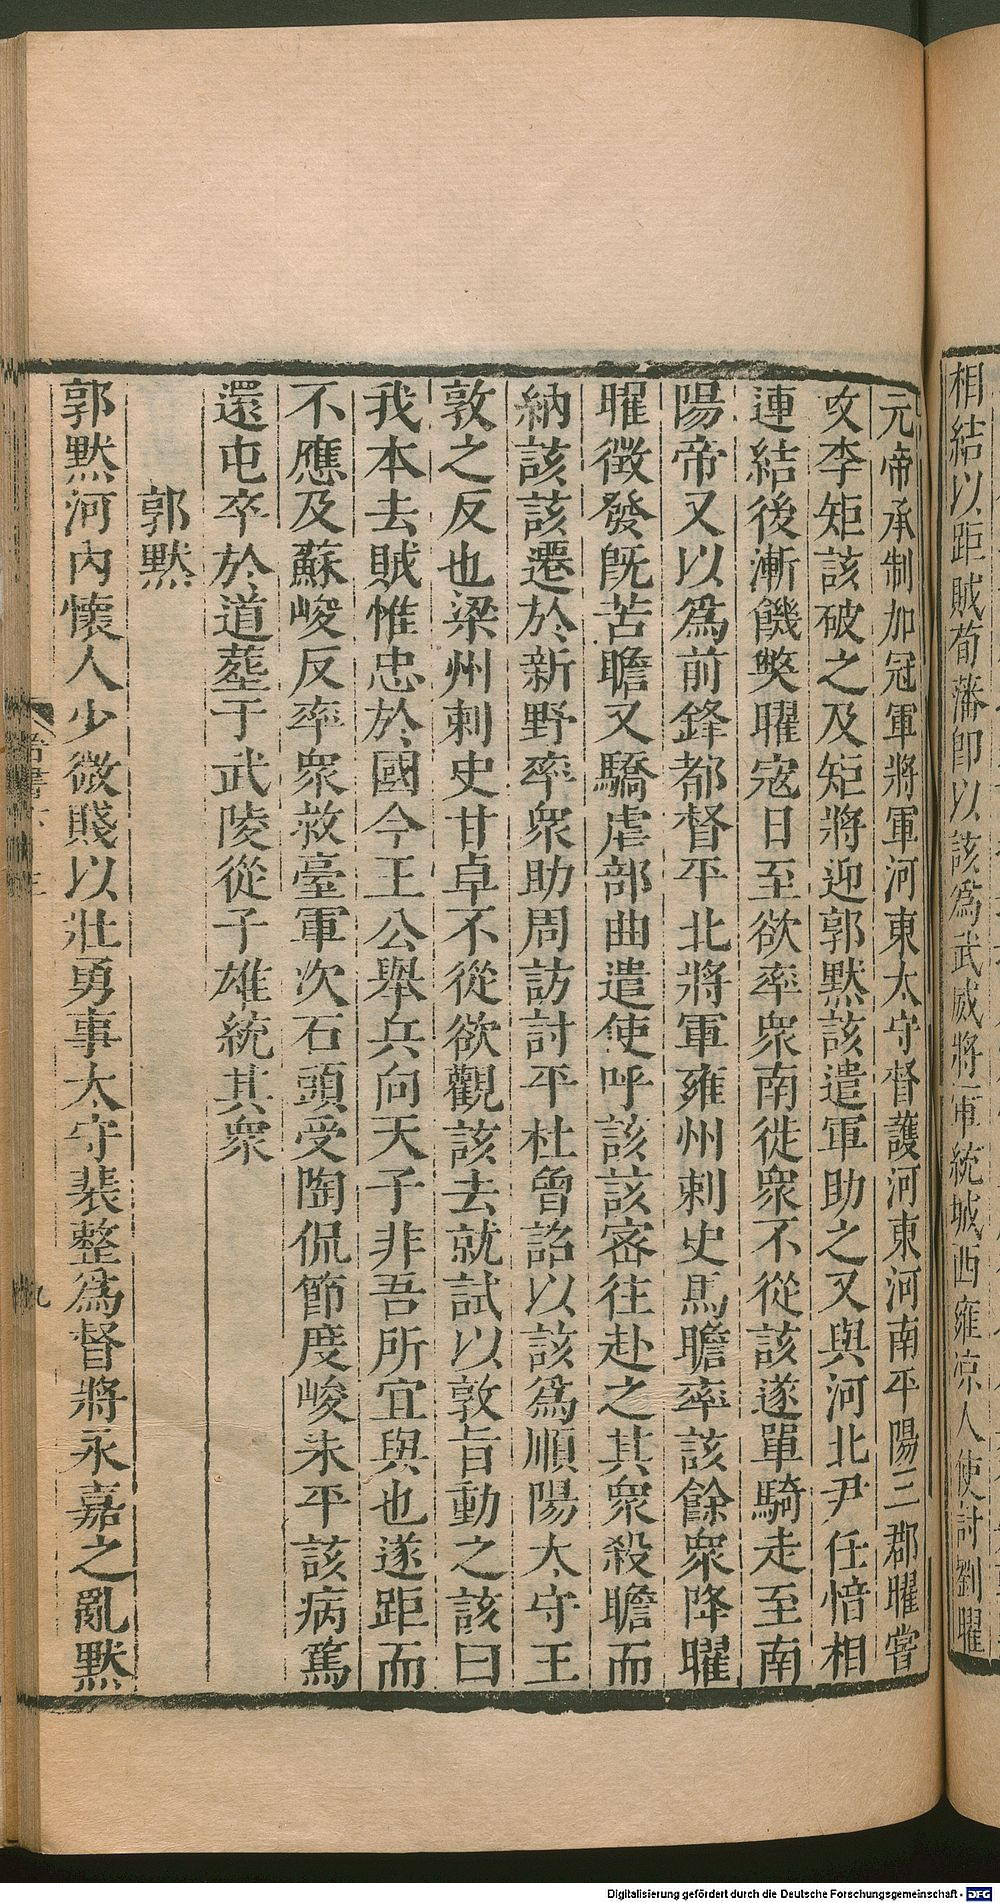 相結以距賊荀藩卽以該爲武威將軍統城西雍涼人使討劉曜
元帝承制加冠軍將軍河東太守督護河東河南平陽三郡曜嘗
攻李矩該破之及矩將迎郭默該遣軍助之又與河北尹任愔相
連結後漸饑獘曜宼日至欲率衆南徙衆不從該遂單騎走至南
陽帝又以爲前鋒都督平北將軍雍州刺史馬瞻率該餘衆降曜
曜徵發旣苦瞻又驕虐部曲遣使呼該該密往赴之其衆殺瞻而
納該該遷於新野率衆助周訪討平杜曾詔以該爲順陽太守王
敦之反也梁州刺史甘卓不從欲觀該去就試以敦旨動之該曰
我本去賊惟忠於國今王公舉兵向天子非吾所宜與也遂距而
不應及蘇峻反率衆救臺軍次石頭受陶侃節度峻未平該病篤
還屯卒於道葬于武陵從子雄統其衆
郭默
郭默河內懷人少微賤以壯勇事太守裴整爲督將永嘉之亂默
九
Digitalisierung gefördert durch die Deutsche Forschungsgemeinschaft - DFG